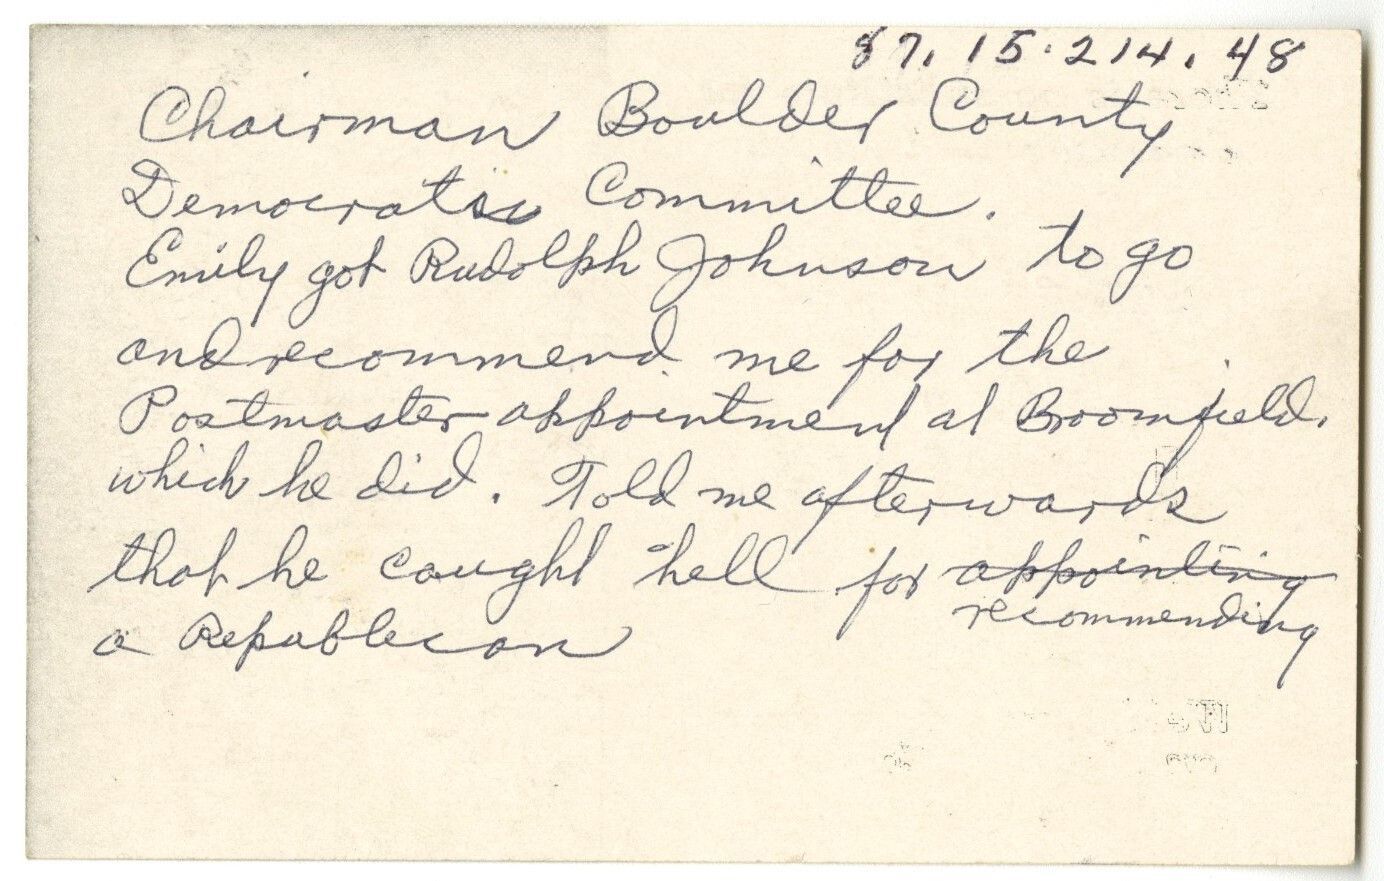 87.15.214.48
Chairman Boulder County
Democratic Committee.
Emily got Rudolph Johnson to go
and recommend me for the
Postmaster appointment at Broomfield.
which he did. Told me afterwards
that he caught hell for appointing
recommending
a Republican